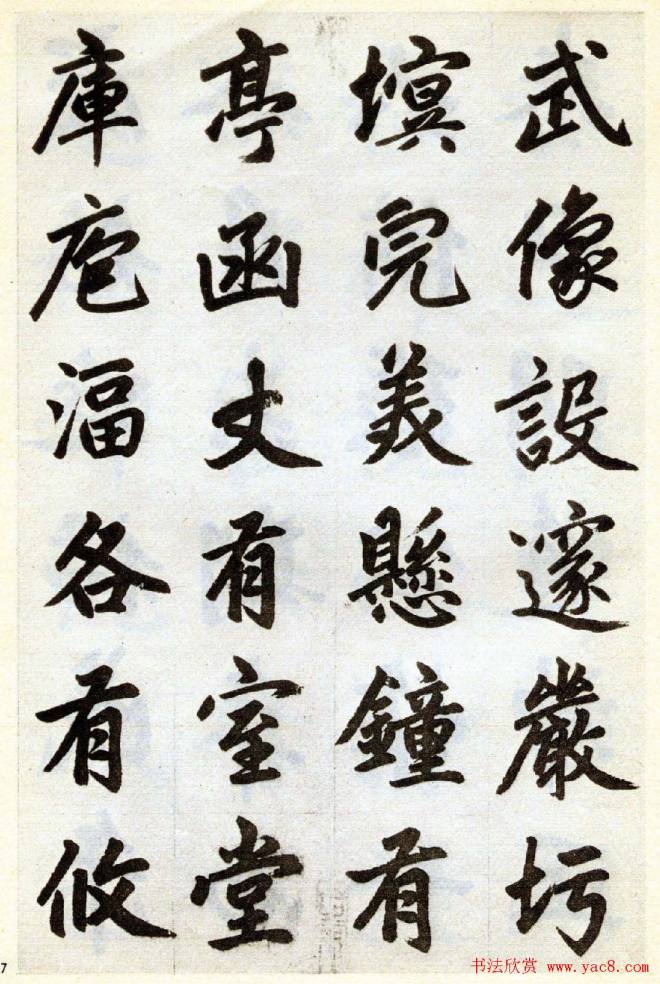 武像設邃嚴圬
塓完美懸鐘有
亭函丈有室堂
庫庖湢各有攸
7
书法欣赏 www.yac8.com